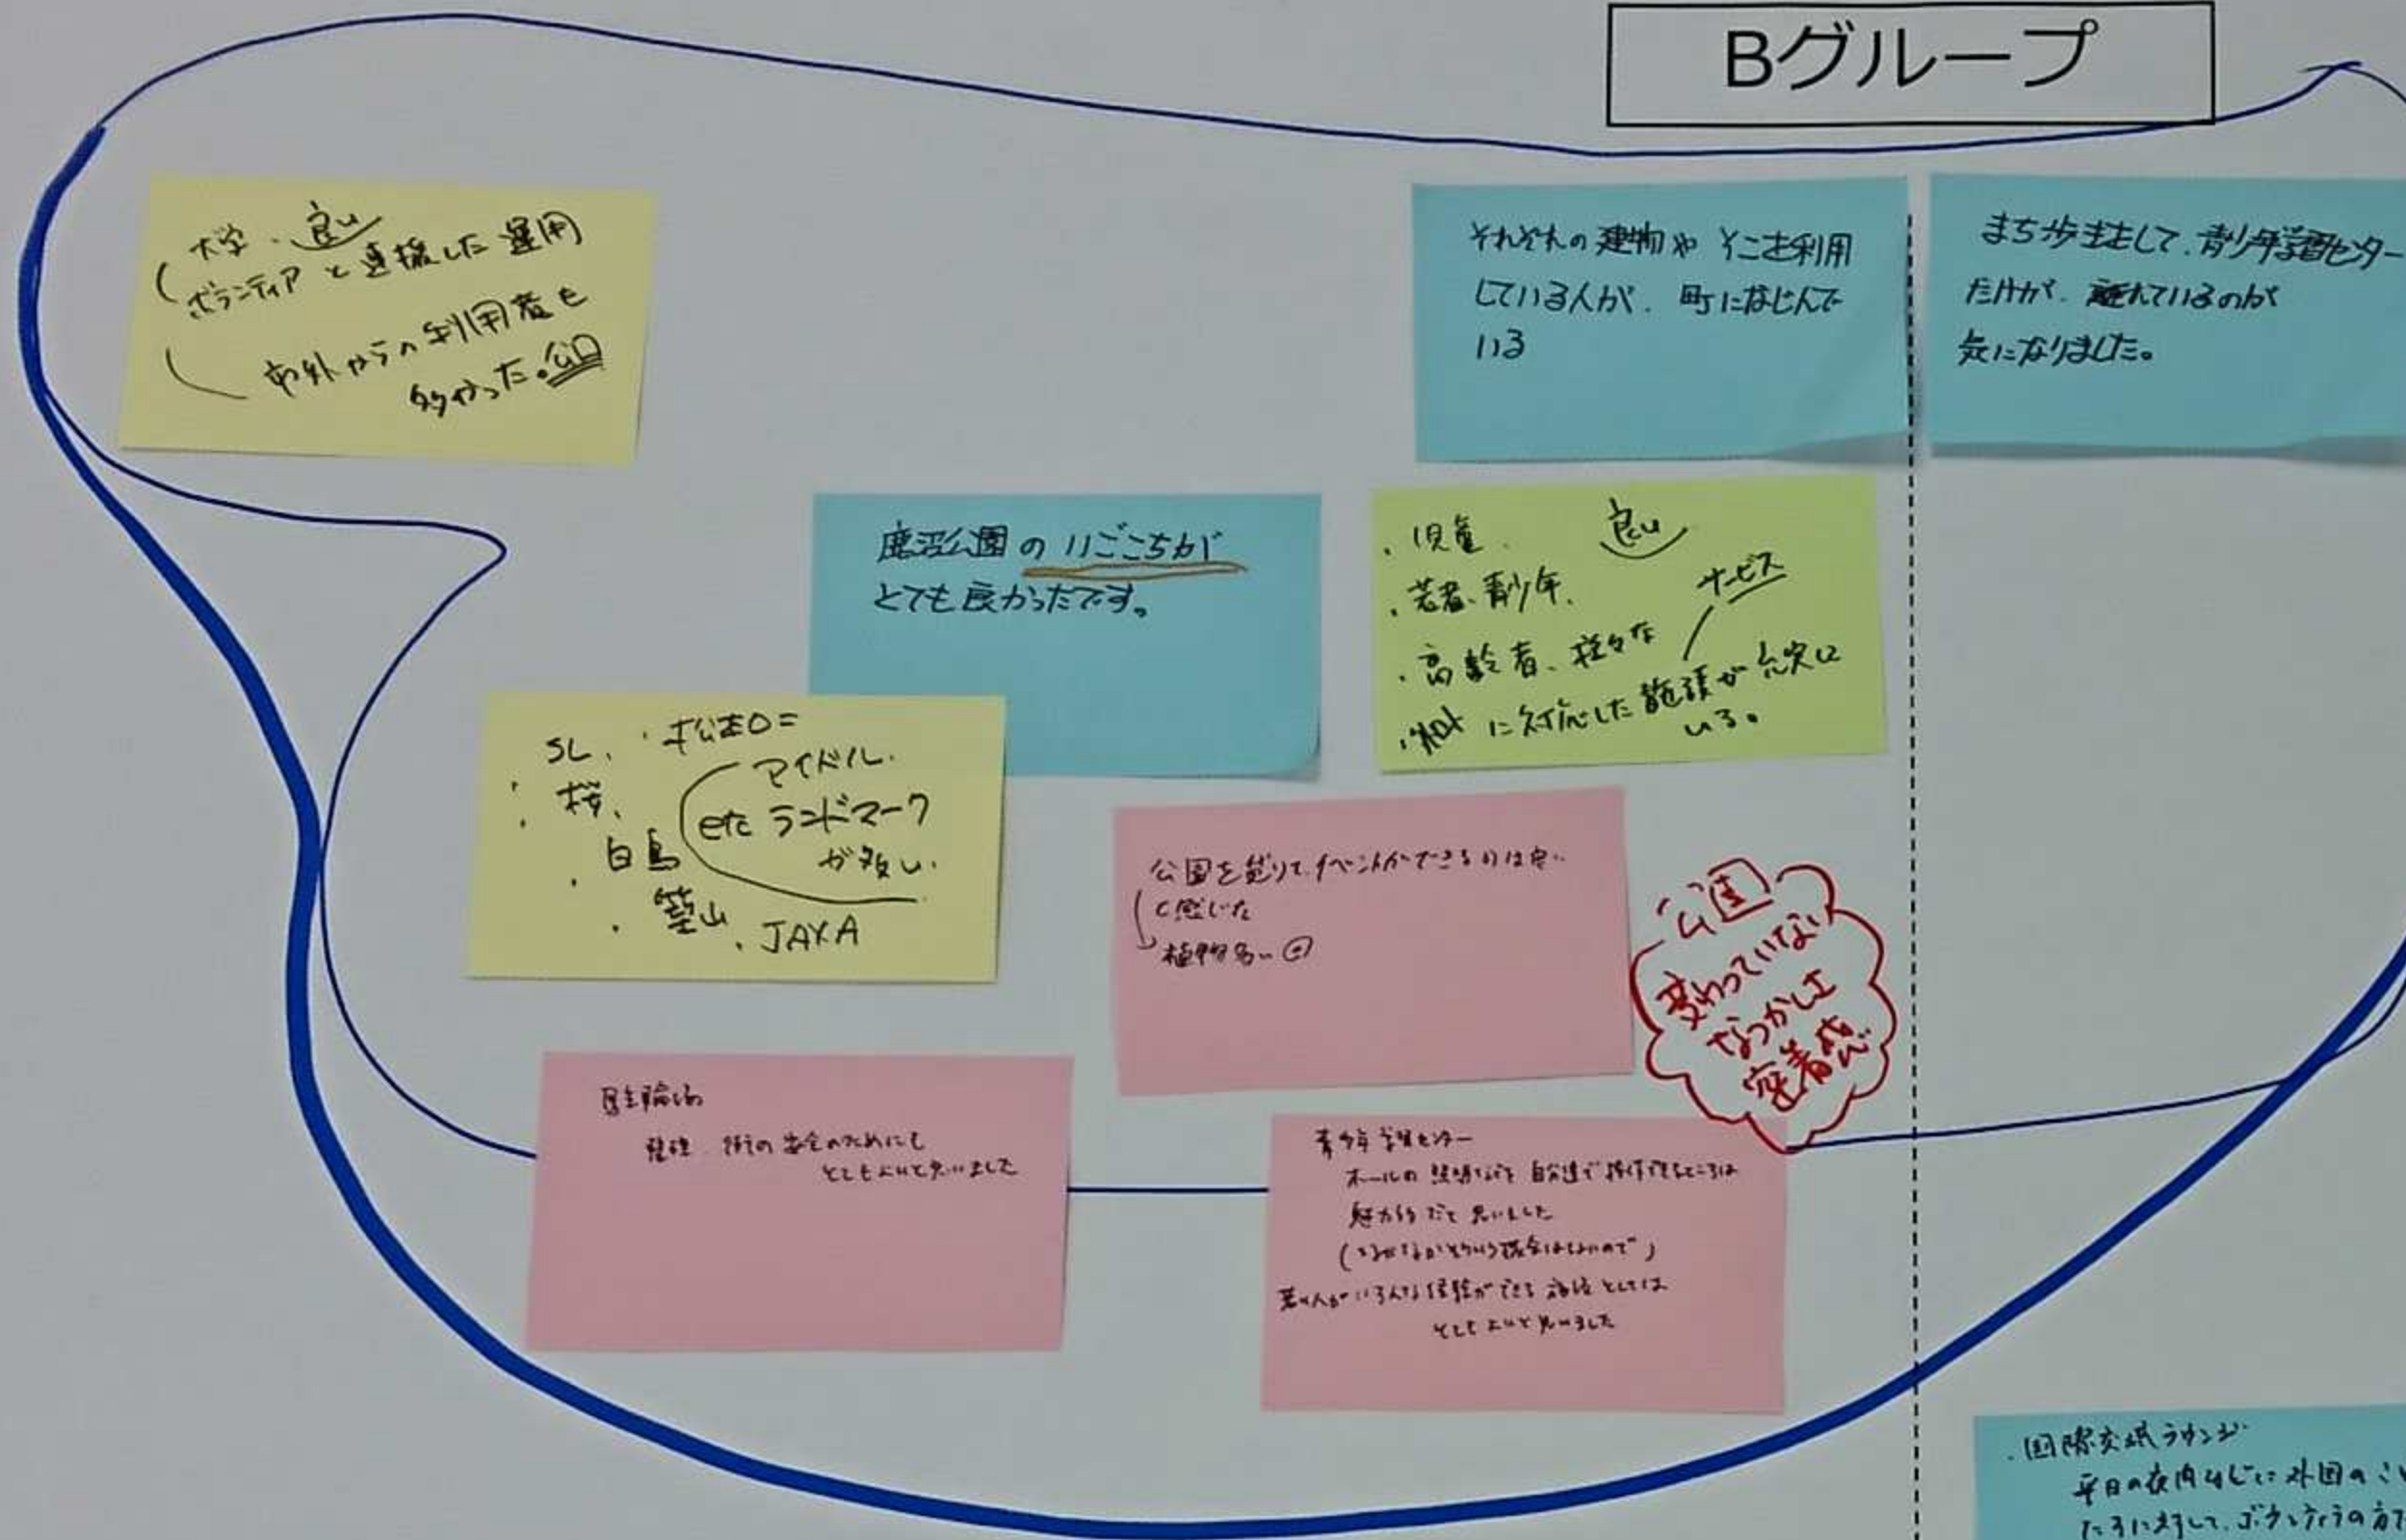 Bグループ
大学・良い
ボランティアと連携した運用
市外からの利用者も
多かった。公民
それぞれの建物や そこを利用
している人が、町になじんで
いる
まち歩きをして、青少年学習センター
だけが、離れているのが
気になりました。
鹿沼公園の いごこちが
とても良かったです。
・児童、 良い
・若者、青少年、 サービス
・高齢者、様々な
に対応した施設が充実して
いる。
SL、・松本0=
・桜、 アイドル
etc ランドマーク
・白鳥 が多い。
・築山、JAXA
公園を創りて、イベントができるのは良い
と感じた
植物多い
公園
変わっていない
なつかしさ
密着感
とてもよいと思いました
青少年学習センター
ホールの 照明などを 自分達で操作できるところは
魅力的だと思いました
(なかなかそういう機会はないので)
若い人がいろんな経験ができる 施設としては
とてもよいと思いました
・国際交流ラウンジ
平日の夜間などに 外国のこど
たちに対して、ボランティアの方